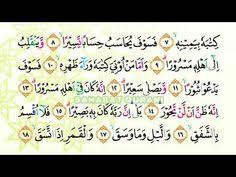 كِتٰبَهٗ بِيَمِيْنِهٖۙ ٧ فَسَوْفَ يُحَاسَبُ حِسَابًا يَّسِيْرًاۙ ٨ وَّيَنْقَلِبُ
اِلٰٓى اَهْلِهٖ مَسْرُوْرًاۗ ٩ وَاَمَّا مَنْ اُوْتِيَ كِتٰبَهٗ وَرَاۤءَ ظَهْرِهٖۙ ١٠ فَسَوْفَ
يَدْعُوْا ثُبُوْرًاۙ ١١ وَّيَصْلٰى سَعِيْرًاۗ ١٢ اِنَّهٗ كَانَ فِيْٓ اَهْلِهٖ مَسْرُوْرًاۗ ١٣
اِنَّهٗ ظَنَّ اَنْ لَّنْ يَّحُوْرَۛ ١٤ بَلٰىۛ اِنَّ رَبَّهٗ كَانَ بِهٖ بَصِيْرًاۗ ١٥ فَلَآ اُقْسِمُ
بِالشَّفَقِۙ ١٦ وَالَّيْلِ وَمَا وَسَقَۙ ١٧ وَالْقَمَرِ اِذَا اتَّسَقَۙ ١٨